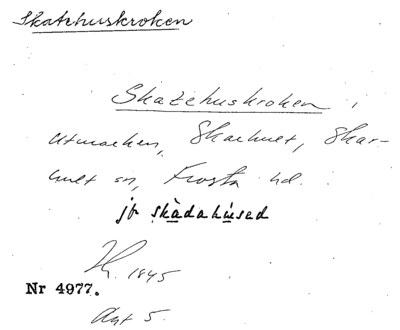 Skatehuskroken
Skatehuskroken i
utmarken, Skarhult, Skar-
hult sn, Frosta hd.
jfr skàdahúsed
1845
Nr 4977.
Akt 5.